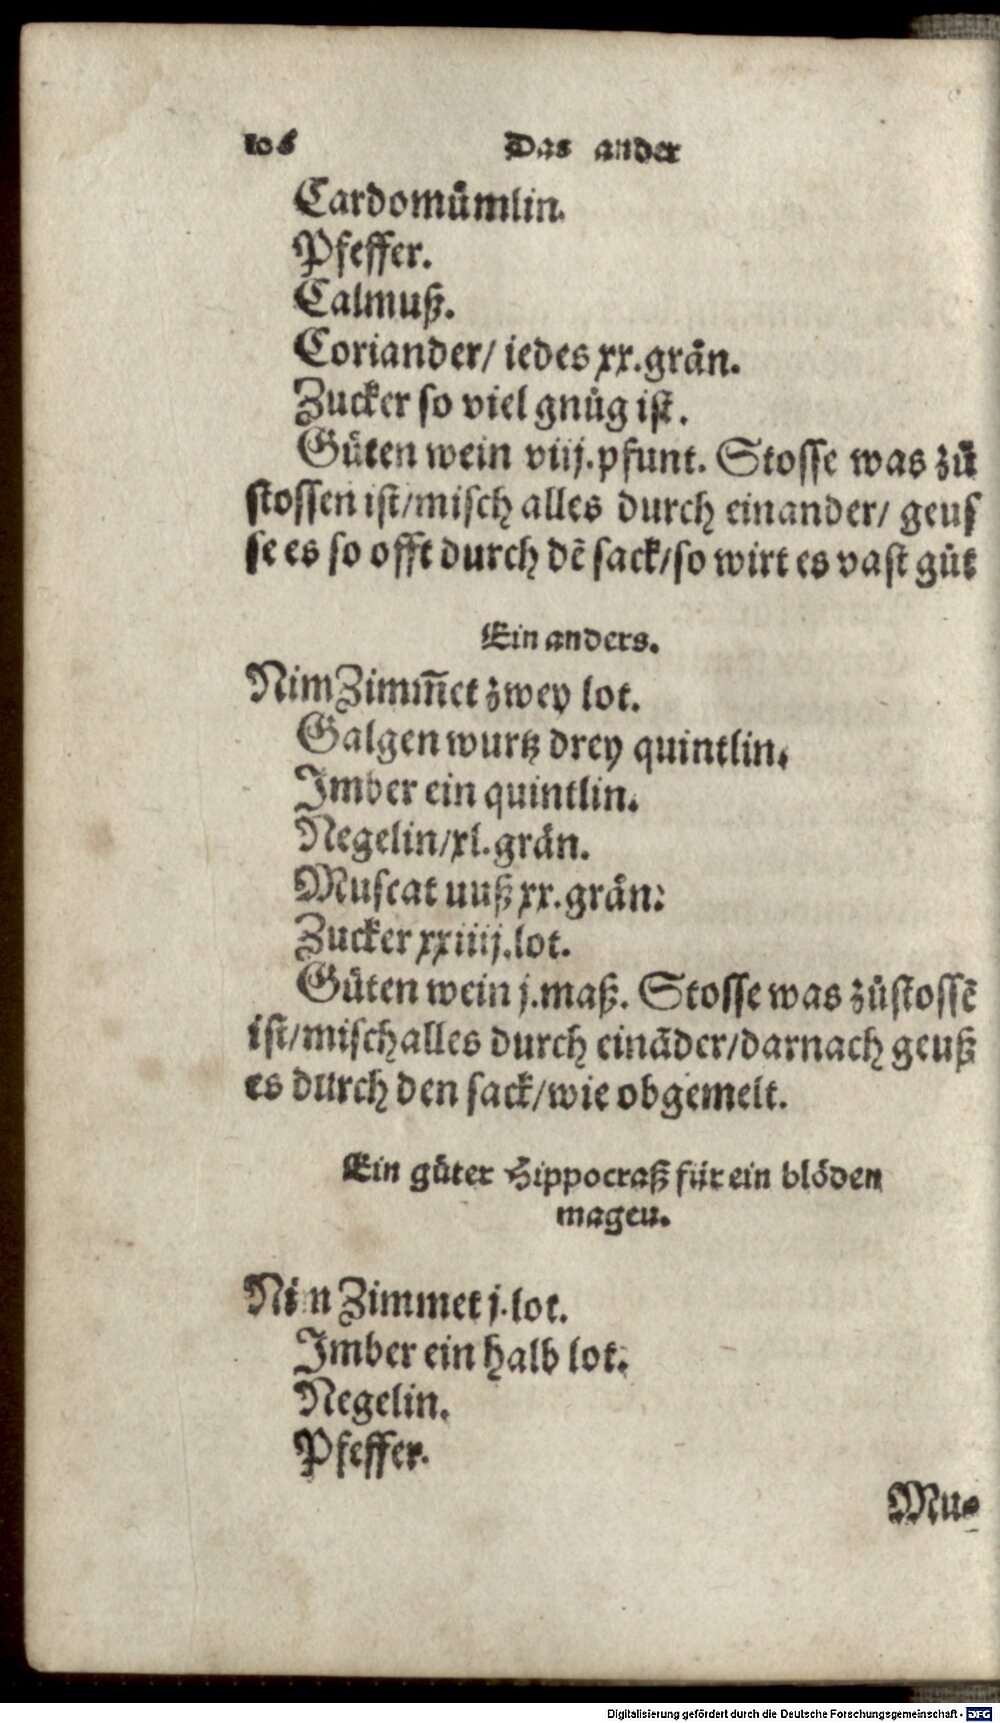 106 Das ander
Cardomümlin.
Pfeffer.
Calmuß.
Coriander/ iedes xx.grän.
Zucker so viel gnůg ist.
Gůten wein viij.pfunt. Stosse was zů
stossen ist/misch alles durch einander/ geus
se es so offt durch dē sack/so wirt es vast gůt
Ein anders.
Nim Zimm̄et zwey lot.
Galgen wurtz drey quintlin.
Imber ein quintlin.
Negelin/xl.grän.
Muscat uuß xx.grän:
Zucker xxiiij.lot.
Gůten wein j.maß. Stosse was zůstossē
ist/misch alles durch eināder/darnach geuß
es durch den sack/wie obgemelt.
Ein gůter Hippocraß für ein blöden
mageu.
Nim Zimmet j.lot.
Imber ein halb lot.
Negelin.
Pfeffer.
Mu-
Digitalisierung gefördert durch die Deutsche Forschungsgemeinschaft - DFG